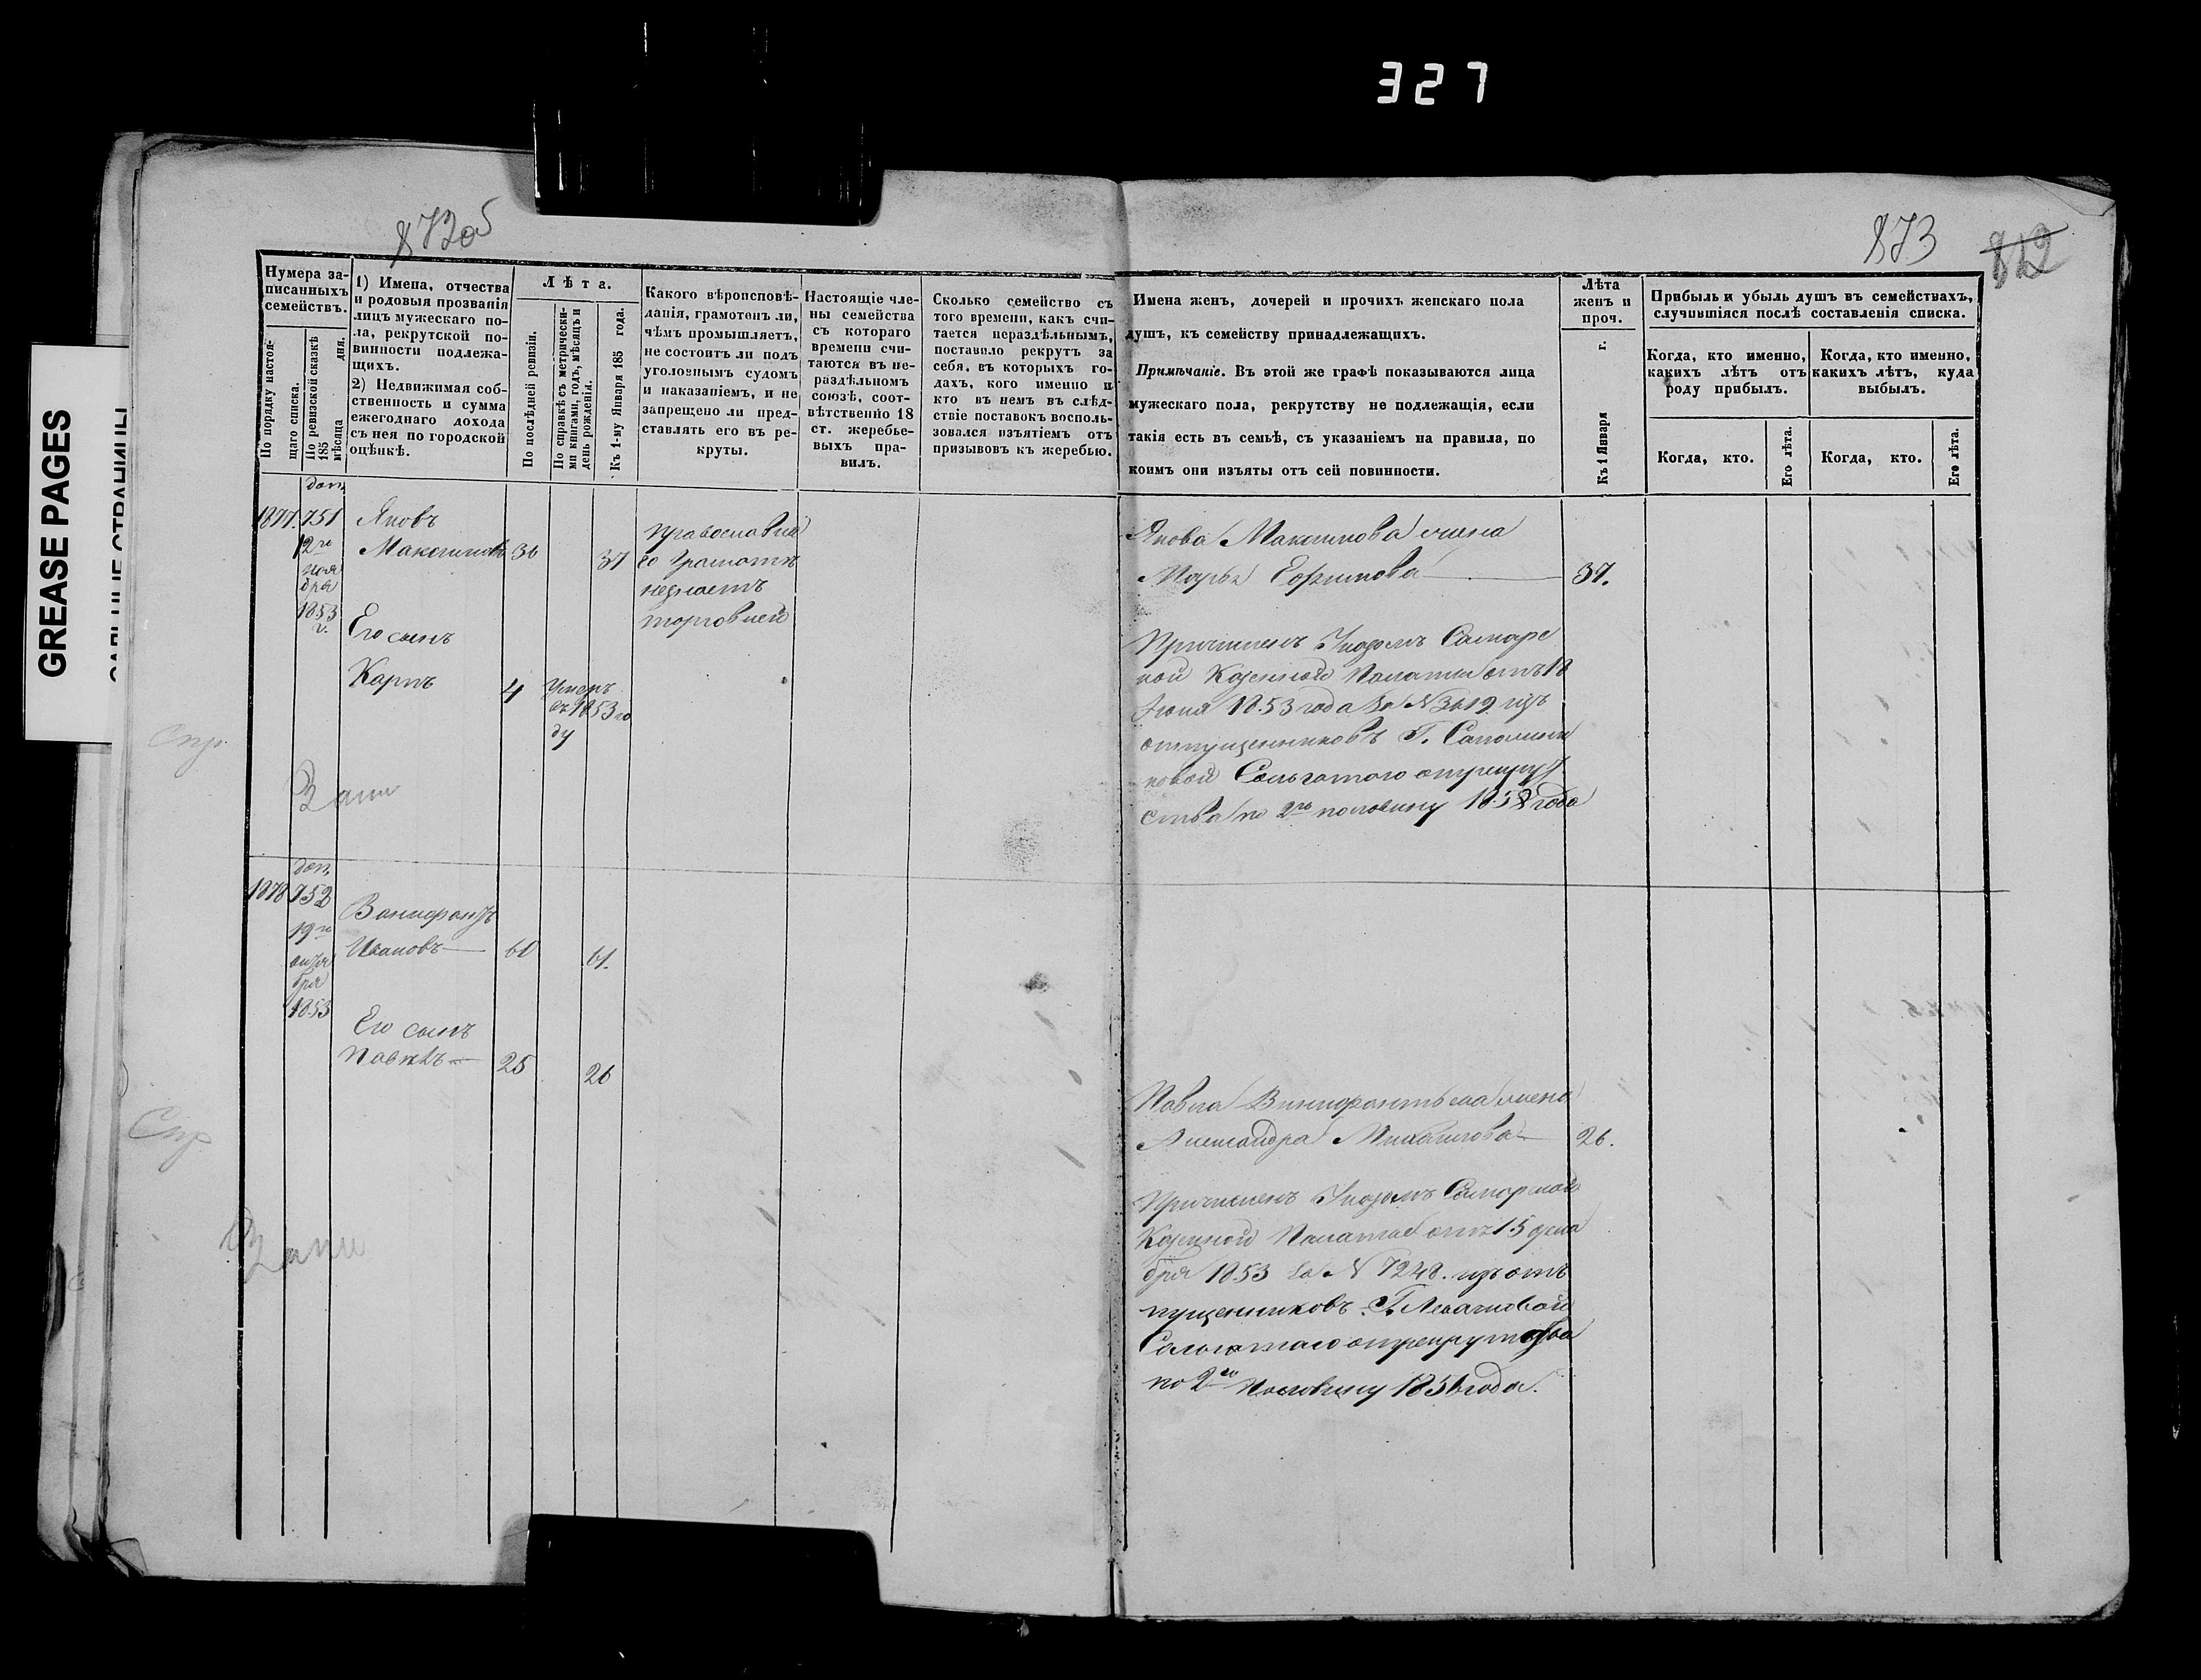 327
GREASE PAGES
873
812
Нумера за-
писанныхъ
семействъ.
По порядку настоя-
щаго списка.
По ревизской сказкѣ
185 дня.
мѣсяца
1) Имена, отчества
и родовыя прозванія
лицъ мужескаго по-
ла, рекрутской по-
винности подлежа-
щихъ.
2) Недвижимая соб-
ственность и сумма
ежегоднаго дохода
съ нея по городской
оцѣнкѣ.
Лѣта.
По послѣдней ревизіи.
По справкѣ съ метрически-
ми книгами, годъ, мѣсяцъ и
день рожденія.
Къ 1-му Января 185 года.
Какого вѣроисповѣ-
данія, грамотенъ ли,
чѣмъ промышляетъ,
не состоитъ ли подъ
уголовнымъ судомъ
и наказаніемъ, и не
запрещено ли пред-
ставлять его въ ре-
круты.
Настоящіе чле-
ны семейства
съ котораго
времени счи-
таются въ не-
раздѣльномъ
союзѣ, соот-
вѣтственно 18
ст. жеребье-
выхъ пра-
вилъ.
Сколько семейство съ
того времени, какъ счи-
тается нераздѣльнымъ,
поставило рекрутъ за
себя, въ которыхъ го-
дахъ, кого именно и
кто въ немъ въ слѣд-
ствіе поставокъ восполь-
зовался изъятіемъ отъ
призывовъ къ жеребью.
Имена женъ, дочерей и прочихъ женскаго пола
душъ, къ семейству принадлежащихъ.
Примѣчаніе. Въ этой же графѣ показываются лица
мужескаго пола, рекрутству не подлежащія, если
такія есть въ семьѣ, съ указаніемъ на правила, по
коимъ они изъяты отъ сей повинности.
Лѣта
женъ и
проч.
Къ 1 Января г.
Прибыль и убыль душъ въ семействахъ,
случившіяся послѣ составленія списка.
Когда, кто именно,
какихъ лѣтъ отъ
роду прибылъ.
Когда, кто именно,
какихъ лѣтъ, куда
выбылъ.
Когда, кто.
Его лѣта.
Когда, кто.
Его лѣта.
доп.
1877. 751
12го
ноя
бря
1853
г.
Яковъ
Максимовъ 36 37
православна
го грамотѣ
незнаетъ
торговлей
Его сынъ
Карпъ 4 Умеръ
въ 1853 го
ду
Якова Максимова жена
Марья Ефимова 37.
Причисленъ Указомъ Самарс
кой Казенной Палаты отъ 18
Іюня 1853 года за № 3619 изъ
отпущенниковъ Г.
половину 1858 года
доп.
1878 752
19го
октя
бря
1853
Вонифантъ
Ивановъ 60 61.
Его сынъ
Павелъ 25 26
Павла Вонифантьева жена
Александра Михайлова 26.
Причисленъ Указомъ Самарской
Казенной Палаты отъ 15 дека
бря 1853 за № 7248. изъ отъ
пущенниковъ Г.
по 2ю Половину 1856 года.